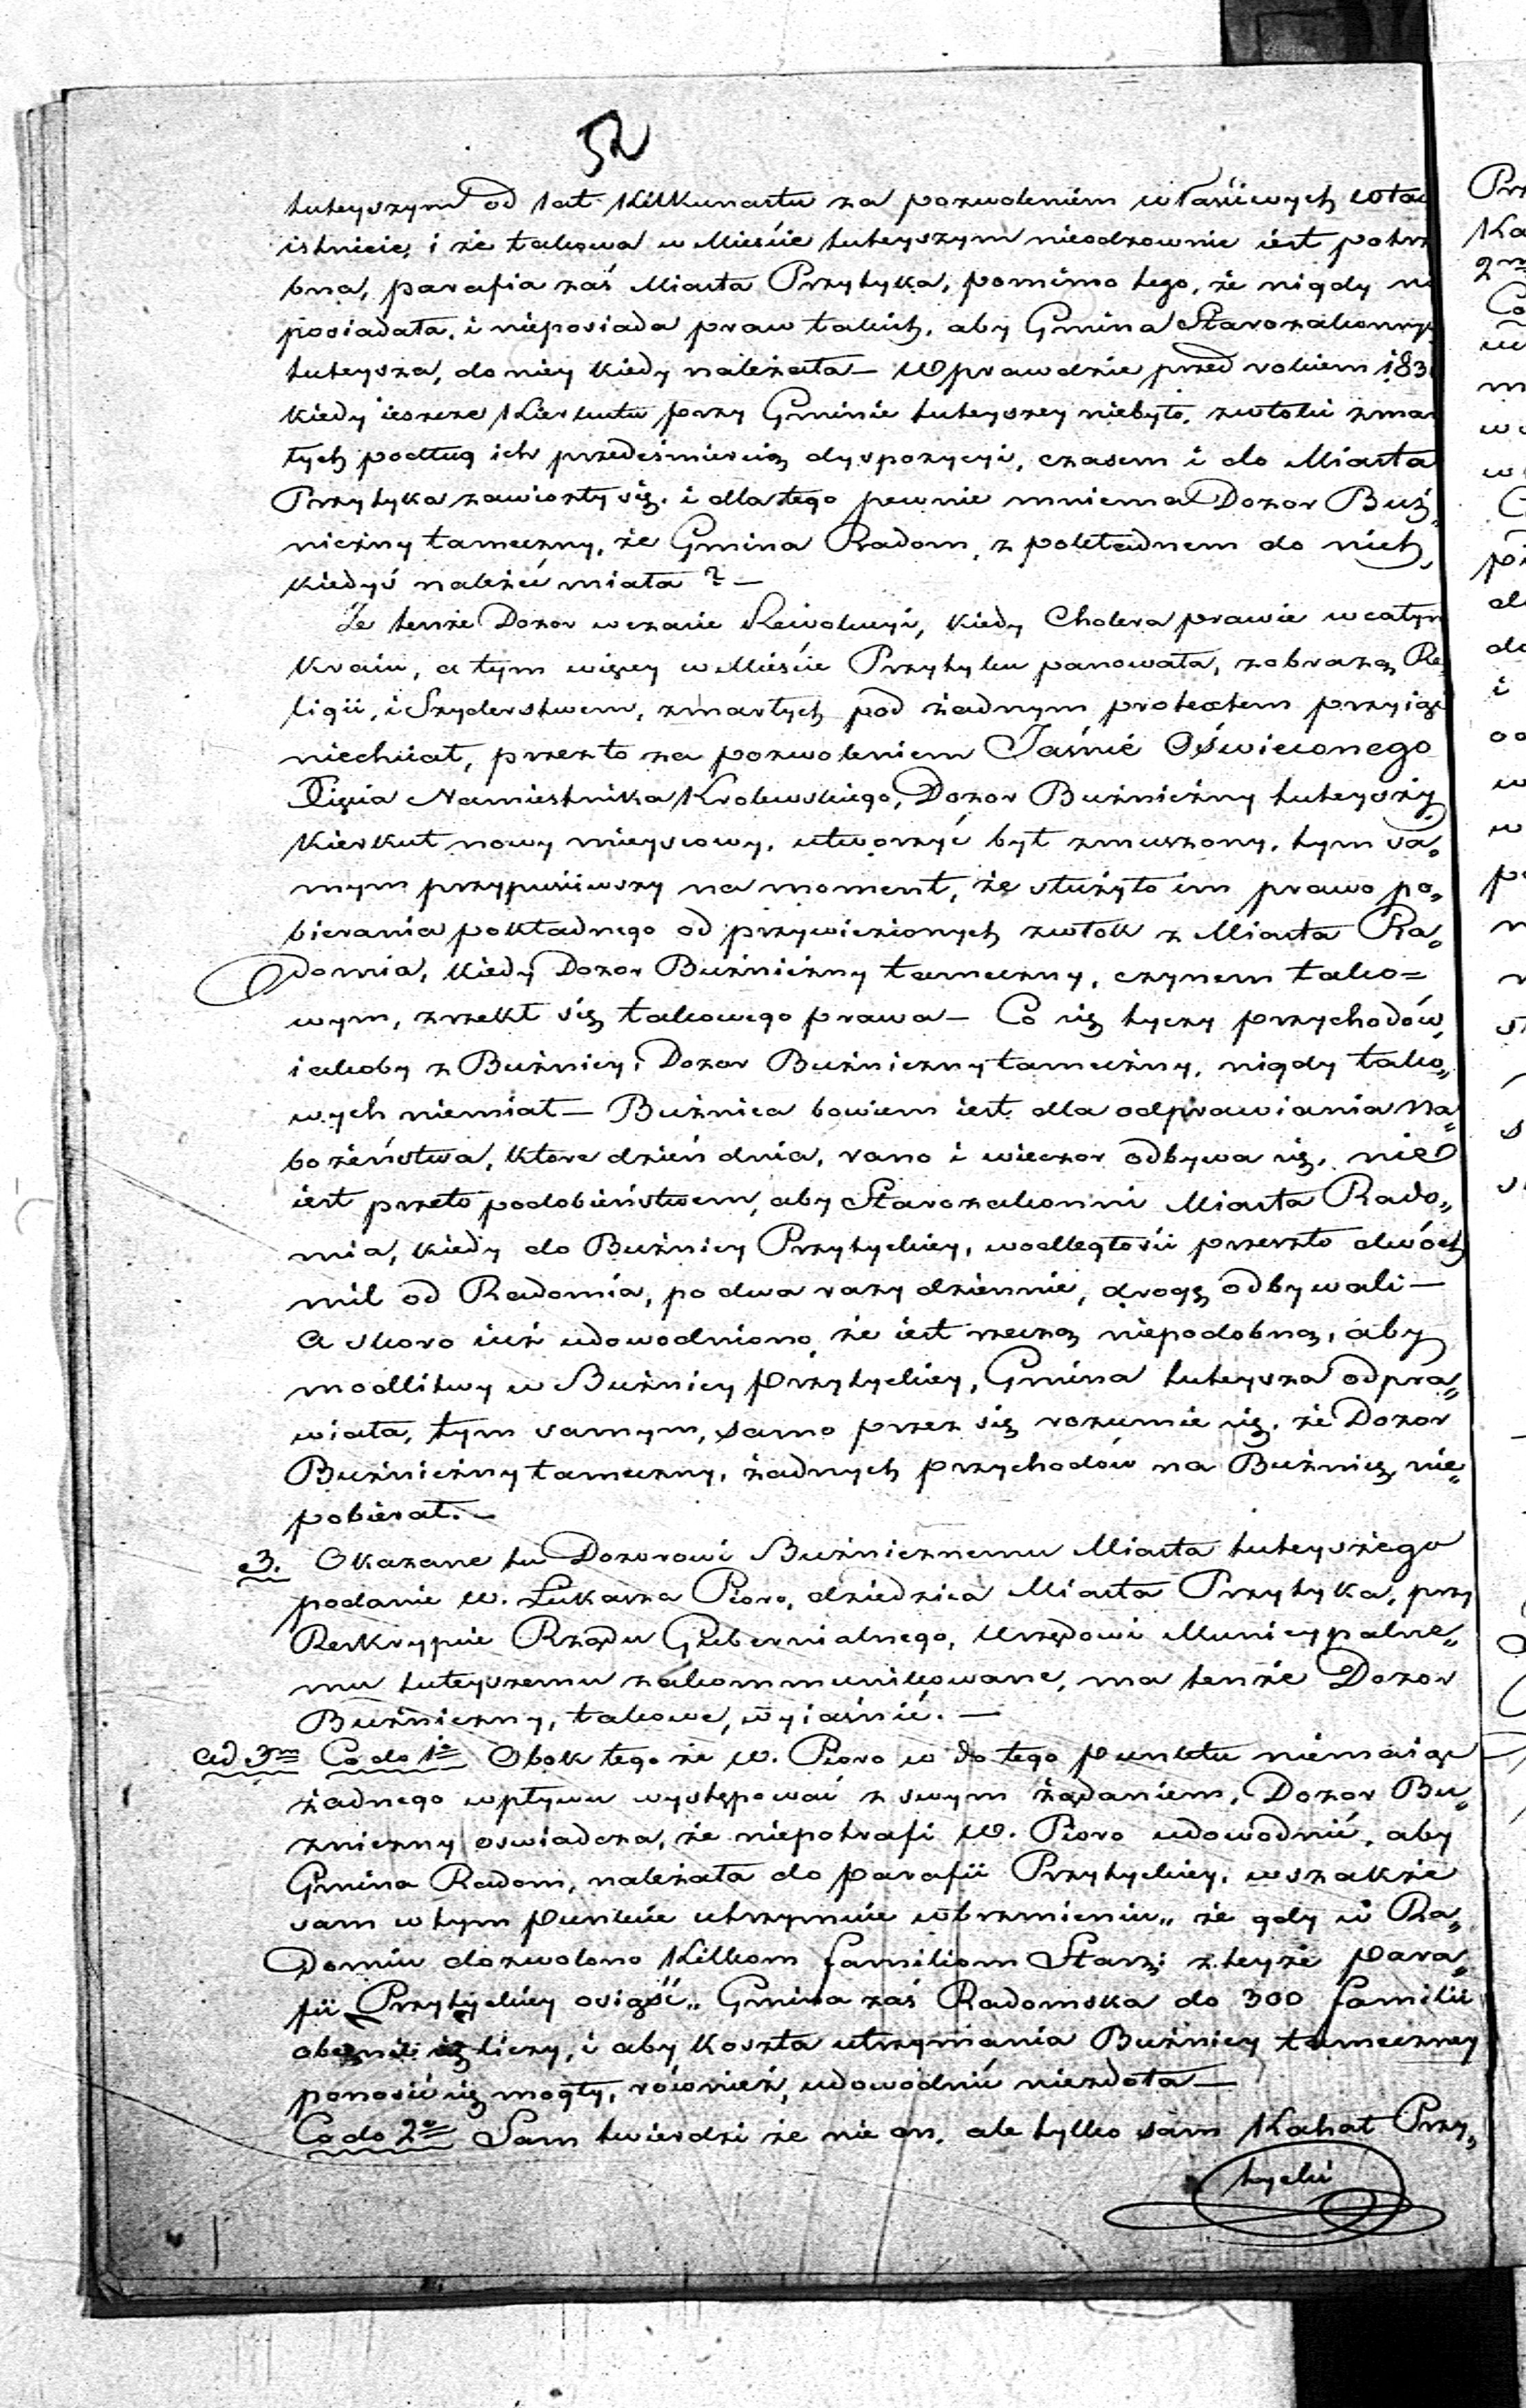 52
tuteyszym od lat kilkunastu za pozwoleniem właściwych Wład
istnieie, i że takowa w Mieście tuteyszym nieodzownie iest potrz
bna, parafia zaś Miasta Przytyka, pomimo tego, że nigdy ni
posiadała, i nieposiada praw takich, aby Gmina Starozakonnych
tuteysza, do niey kiedy należała — Wprawdzie przed rokiem 183
kiedy ieszcze Kierkutu przy Gminie tuteyszey niebyło, zwłoki zmar
łych podług ich przedśmiercią dyspozycyi, czasem i do Miasta
Przytyka zawiozły się, i dla tego pewnie mniema Dozor Buż„
niczny tameczny, że Gmina Radom, z pokładnem do nich
kiedyś należeć miała? —
Że tenże Dozor wczasie Rewolucyi, kiedy Cholera prawie wcałym
Kraiu, a tym więcy w Mieście Przytyku panowała, zobrazą Re
ligii, i Szyderstwem, zmarłych pod żadnym protextem przyiąć
niechciał, przezto za pozwoleniem Jaśnie Oświeconego
Xięcia Namiestnika Krolewskiego, Dozor Bużniczny tuteyszy
Kierkut nowy mieyscowy, utworzyć był zmuszony, tym sa„
mym przypuściwszy na moment, że służyło im prawo po„
bierania pokładnego od przywiezionych zwłok z Miasta Ra„
domia, kiedy Dozor Bużniczny tameczny, czynem tako=
wym, zrzekł się takowego prawa — Co się tyczy przychodów
iakoby z Bużnicy, Dozor Bużniczny tameczny, nigdy tako„
wych niemiał — Bużnica bowiem iest dla odprawiania Na„
bożeństwa, ktore dzień dnia, rano i wieczor odbywa się, nie
iest przeto podobieństwem, aby Starozakonni Miasta Rado„
mia, kiedy do Bużnicy Przytyckiey, wodległości przeszło dwóch
mil od Radomia, po dwa razy dziennie, drogę odbywali —
A skoro iuż udowodniono, że iest rzeczą niepodobną, aby
modlitwy w Bużnicy Przytyckiey, Gmina tuteysza odpra„
wiała, tym samym, samo przez się rozumie się, że Dozor
Bużniczny tameczny, żadnych przychodów na Bużnicę nie„
pobierał. —
3. Okazane tu Dozorowi Bużnicznemu Miasta tuteyszego
podanie W. Łukasza Pioro, dziedzica Miasta Przytyka, przy
Reskrypcie Rządu Gubernialnego, Urzędowi Municypalne„
mu tuteyszemu zakommunikowane, ma tenże Dozor
Bużniczny, takowe, wyiaśnić. —
ad 3m Co do 1o Obok tego że W. Pioro w do tego punktu niemaiąc
żadnego wpływu występować z swym żądaniem, Dozor Bu„
zniczny oswiadcza, że niepotrafi W. Pioro udowodnić, aby
Gmina Radom, należała do parafii Przytyckiey, wszakże
sam w tym punkcie utrzymuie wbrzmieniu„ że gdy w Ra„
domiu dozwolono kilkom familiom Starz: z teyże para„
fii Przytyckiey osiąść„ Gmina zaś Radomska do 300 familii
obecnie się liczy, i aby koszta utrzymania Bużnicy tameczney
ponosić się mogły, również, udowodnić niezdoła —
Co do 2o Sam twierdzi że nie on, ale tylko sam Kahał Przy„
tycki